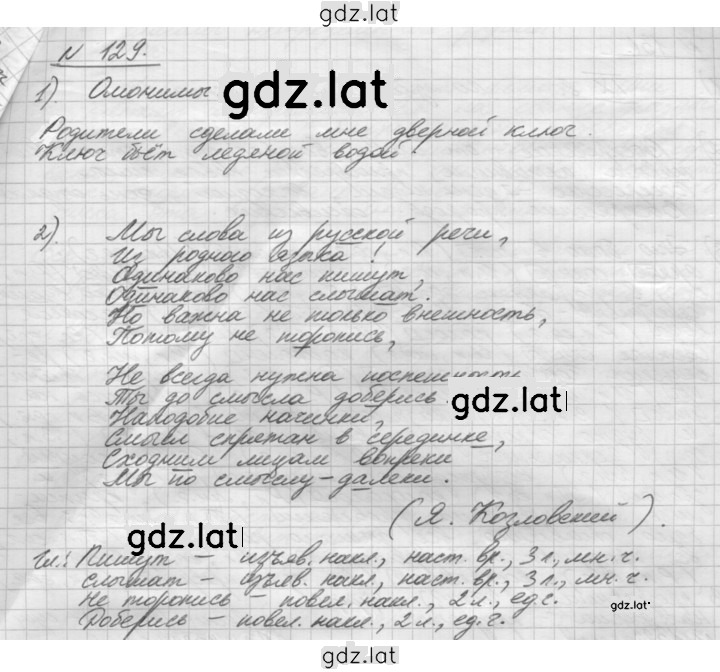 gdz.lat
N 129.
1). Омонимы
gdz.lat
Родители сделали мне дверной ключ.
Ключ бьёт ледяной водой.
2). Мы слова из русской речи,
Из родного языка!
Одинаково нас пишут,
Одинаково нас слышат.
Но важна не только внешность,
Потому не торопись,
Не всегда нужна поспешность
Ты до смысла доберись.
gdz.lat
Наподобие начинки,
Смысл спрятан в серединке,
Сходным лицам вопреки
Мы по смыслу - далеки.
(Я. Козловский).
gdz.lat
Гл.: Пишут - изъяв. накл., наст. вр., 3 л., мн. ч.
Слышат - изъяв. накл., наст. вр., 3 л., мн. ч.
Не торопись - повел. накл., 2 л., ед. ч.
gdz.lat
Доберись - повел. накл., 2 л., ед. ч.
gdz.lat